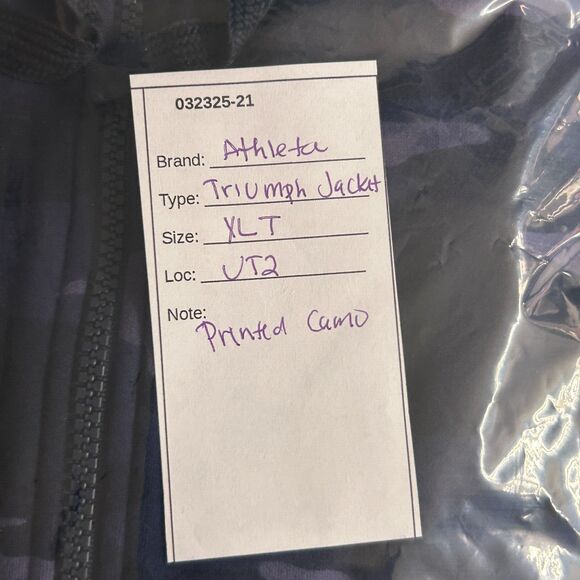 032325-21
Brand: Athleta
Type: Triumph Jacket
Size: XLT
Loc: UT2
Note:
Printed Camo